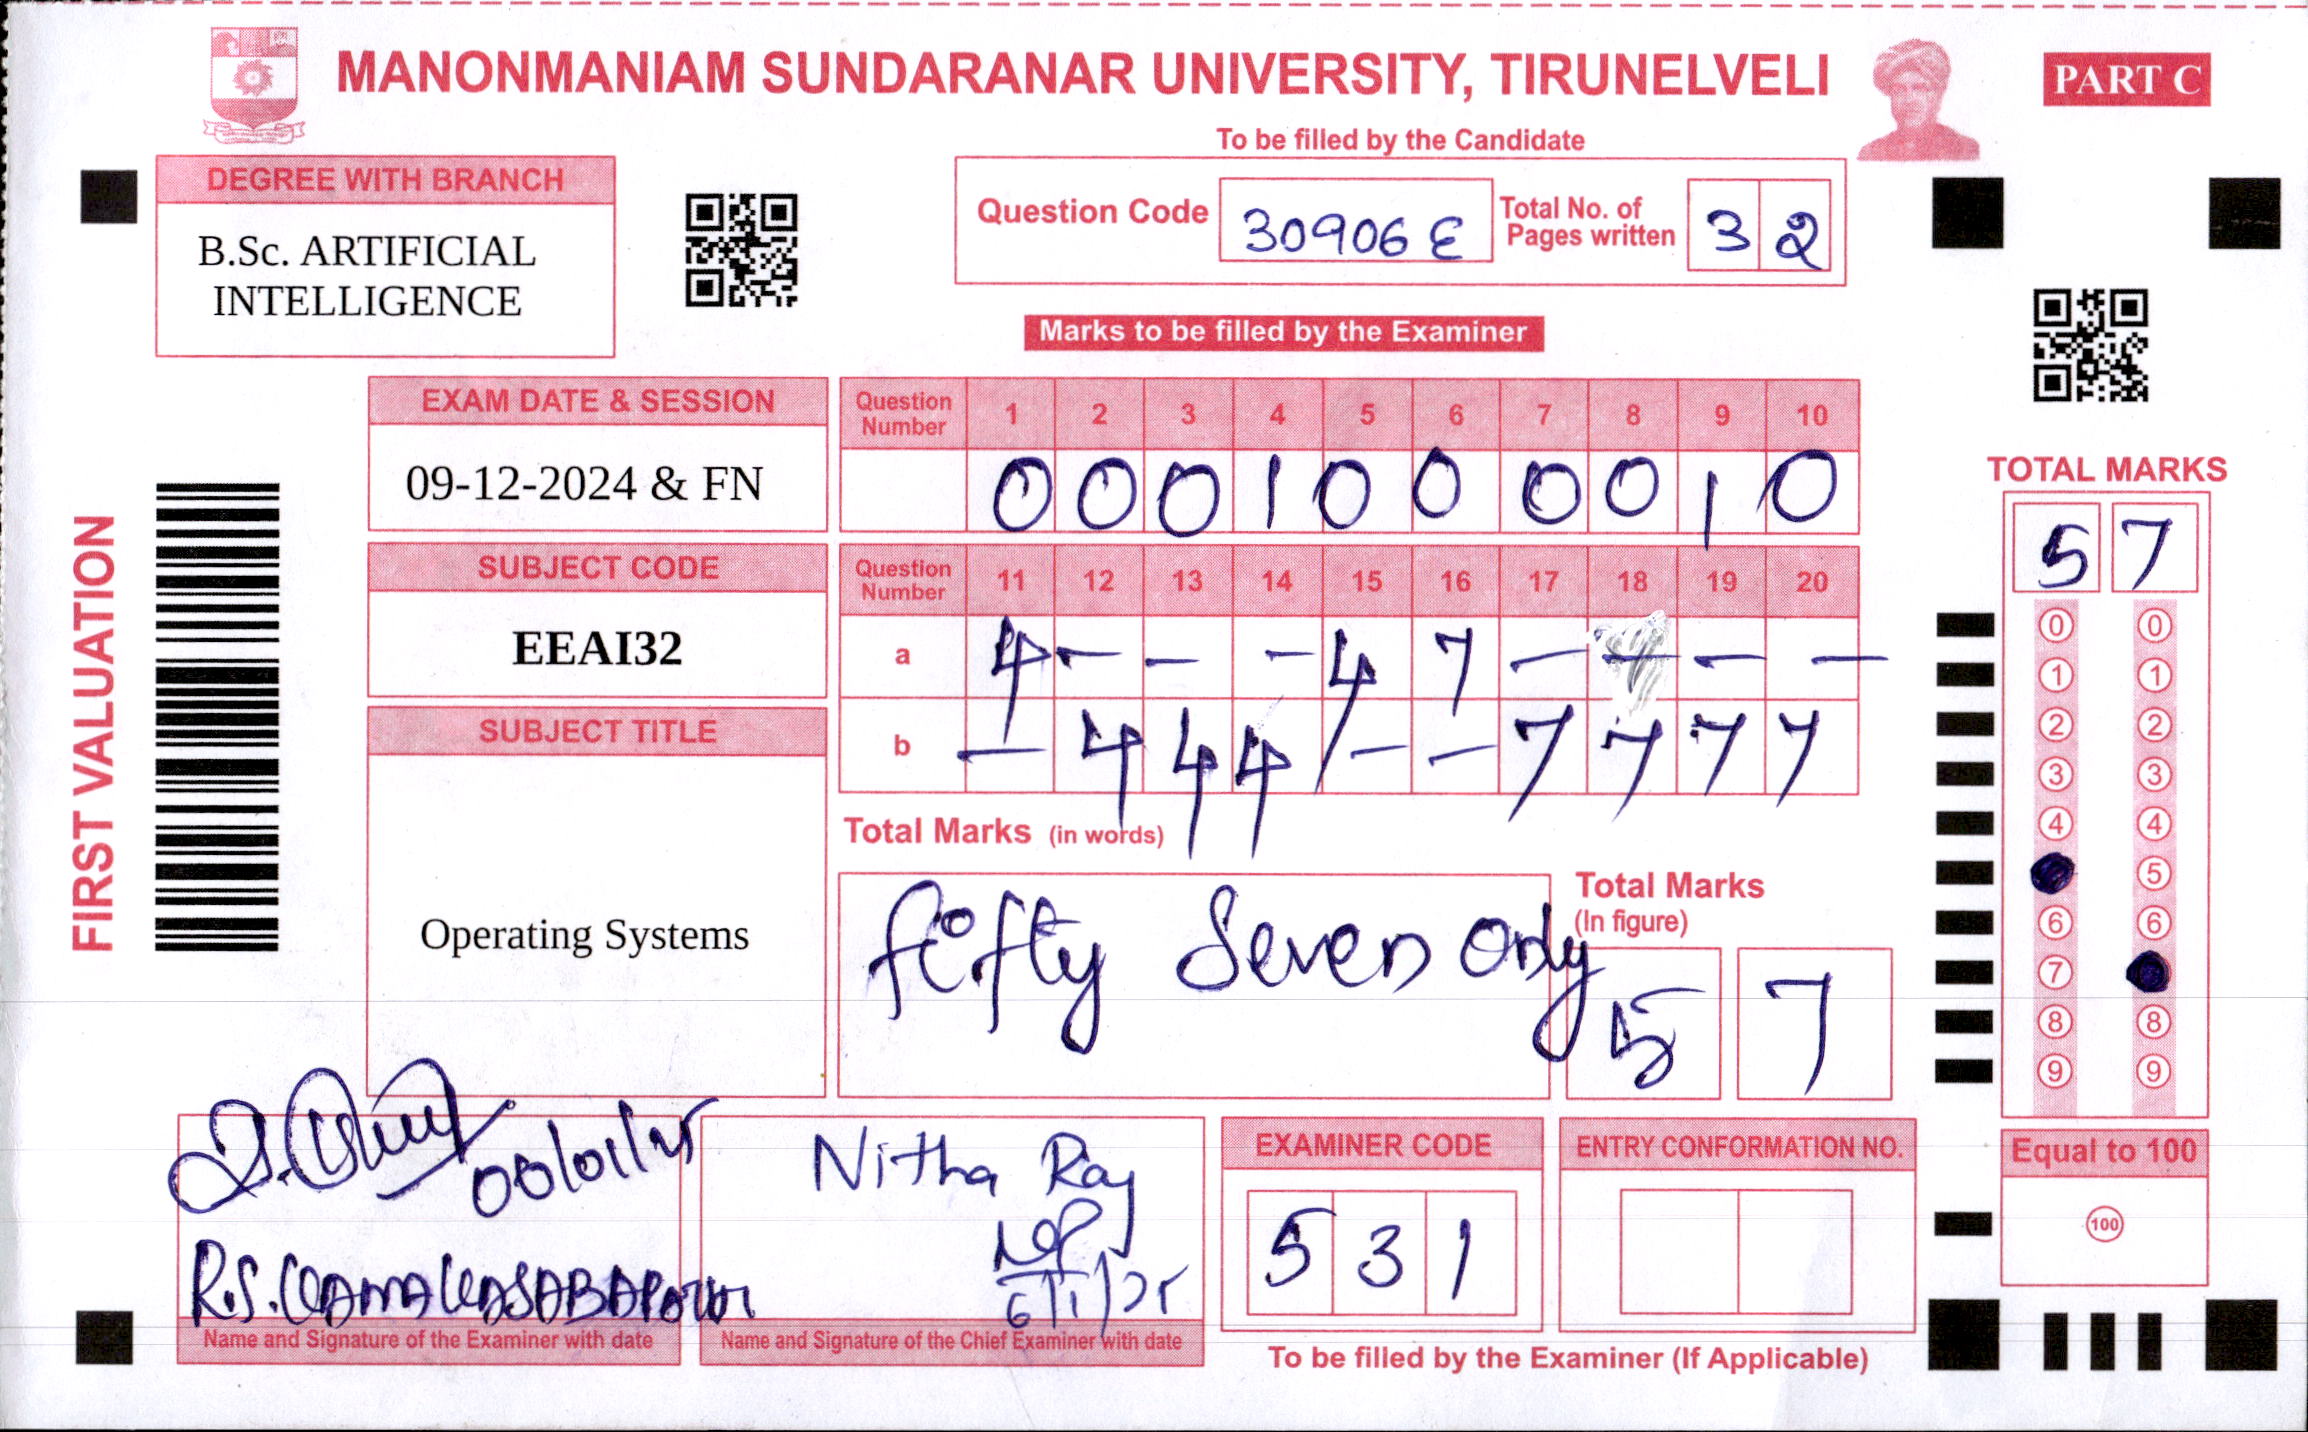 MANONMANIAM SUNDARANAR UNIVERSITY, TIRUNELVELI
PART C
To be filled by the Candidate
DEGREE WITH BRANCH
B.Sc. ARTIFICIAL
INTELLIGENCE
Question Code 30906 E Total No. of Pages written 3 2
Marks to be filled by the Examiner
EXAM DATE & SESSION
09-12-2024 & FN
Question Number 1 2 3 4 5 6 7 8 9 10
0 0 0 1 0 0 0 0 1 0
SUBJECT CODE
EEAI32
Question Number 11 12 13 14 15 16 17 18 19 20
a 4 - - - 4 7 - - - -
b - 4 4 4 - - 7 7 7 7
SUBJECT TITLE
Operating Systems
Total Marks (in words)
Fifty Seven Only
Total Marks
(In figure)
5 7
FIRST VALUATION
TOTAL MARKS
5 7
0 0
1 1
2 2
3 3
4 4
5
6 6
7
8 8
9 9
Equal to 100
100
Nitha Raj
6/1/25
Name and Signature of the Examiner with date
Name and Signature of the Chief Examiner with date
EXAMINER CODE
5 3 1
ENTRY CONFORMATION NO.
To be filled by the Examiner (If Applicable)